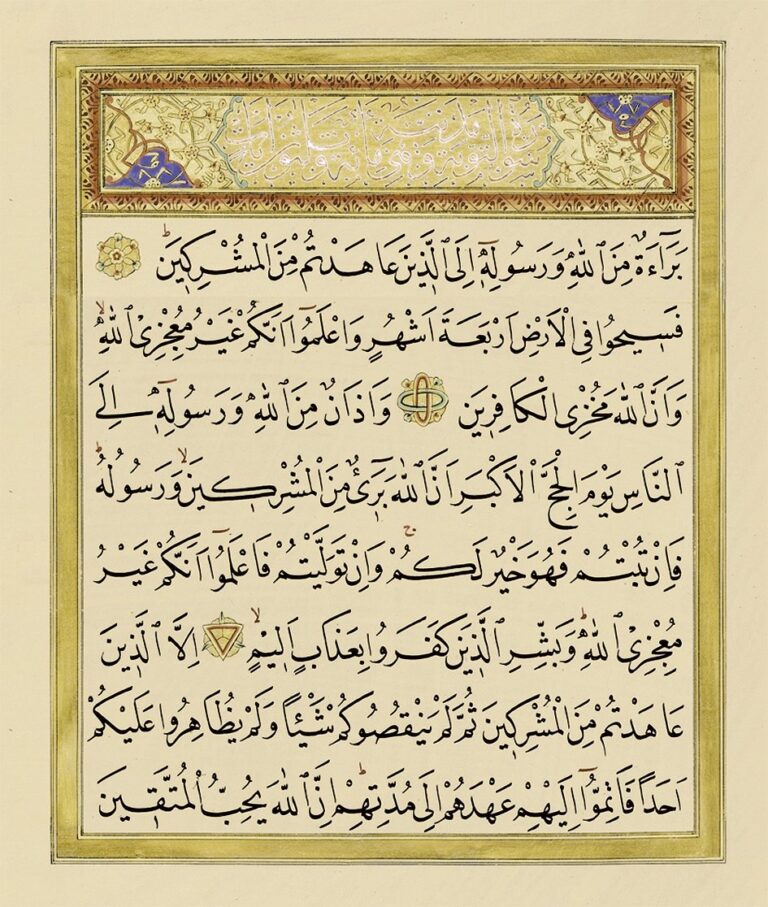 سورة التوبة مدنية وهي مائة وتسع آيات
بَرَٓاءَةٌ مِنَ اللّٰهِ وَرَسُولِه۪ٓ اِلَى الَّذ۪ينَ عَاهَدْتُمْ مِنَ الْمُشْرِك۪ينَۜ
فَس۪يحُوا فِي الْاَرْضِ اَرْبَعَةَ اَشْهُرٍ وَاعْلَمُٓوا اَنَّكُمْ غَيْرُ مُعْجِزِي اللّٰهِۙ
وَاَنَّ اللّٰهَ مُخْزِي الْكَافِر۪ينَ وَاَذَانٌ مِنَ اللّٰهِ وَرَسُولِه۪ٓ اِلَى
النَّاسِ يَوْمَ الْحَجِّ الْاَكْبَرِ اَنَّ اللّٰهَ بَر۪ٓيءٌ مِنَ الْمُشْرِك۪ينَۙ وَرَسُولُهُۜ
فَاِنْ تُبْتُمْ فَهُوَ خَيْرٌ لَكُمْۚ وَاِنْ تَوَلَّيْتُمْ فَاعْلَمُٓوا اَنَّكُمْ غَيْرُ
مُعْجِزِي اللّٰهِۜ وَبَشِّرِ الَّذ۪ينَ كَفَرُوا بِعَذَابٍ اَل۪يمٍۙ اِلَّا الَّذ۪ينَ
عَاهَدْتُمْ مِنَ الْمُشْرِك۪ينَ ثُمَّ لَمْ يَنْقُصُوكُمْ شَيْـٔاً وَلَمْ يُظَاهِرُوا عَلَيْكُمْ
اَحَداً فَاَتِمُّٓوا اِلَيْهِمْ عَهْدَهُمْ اِلٰى مُدَّتِهِمْۜ اِنَّ اللّٰهَ يُحِبُّ الْمُتَّق۪ينَ